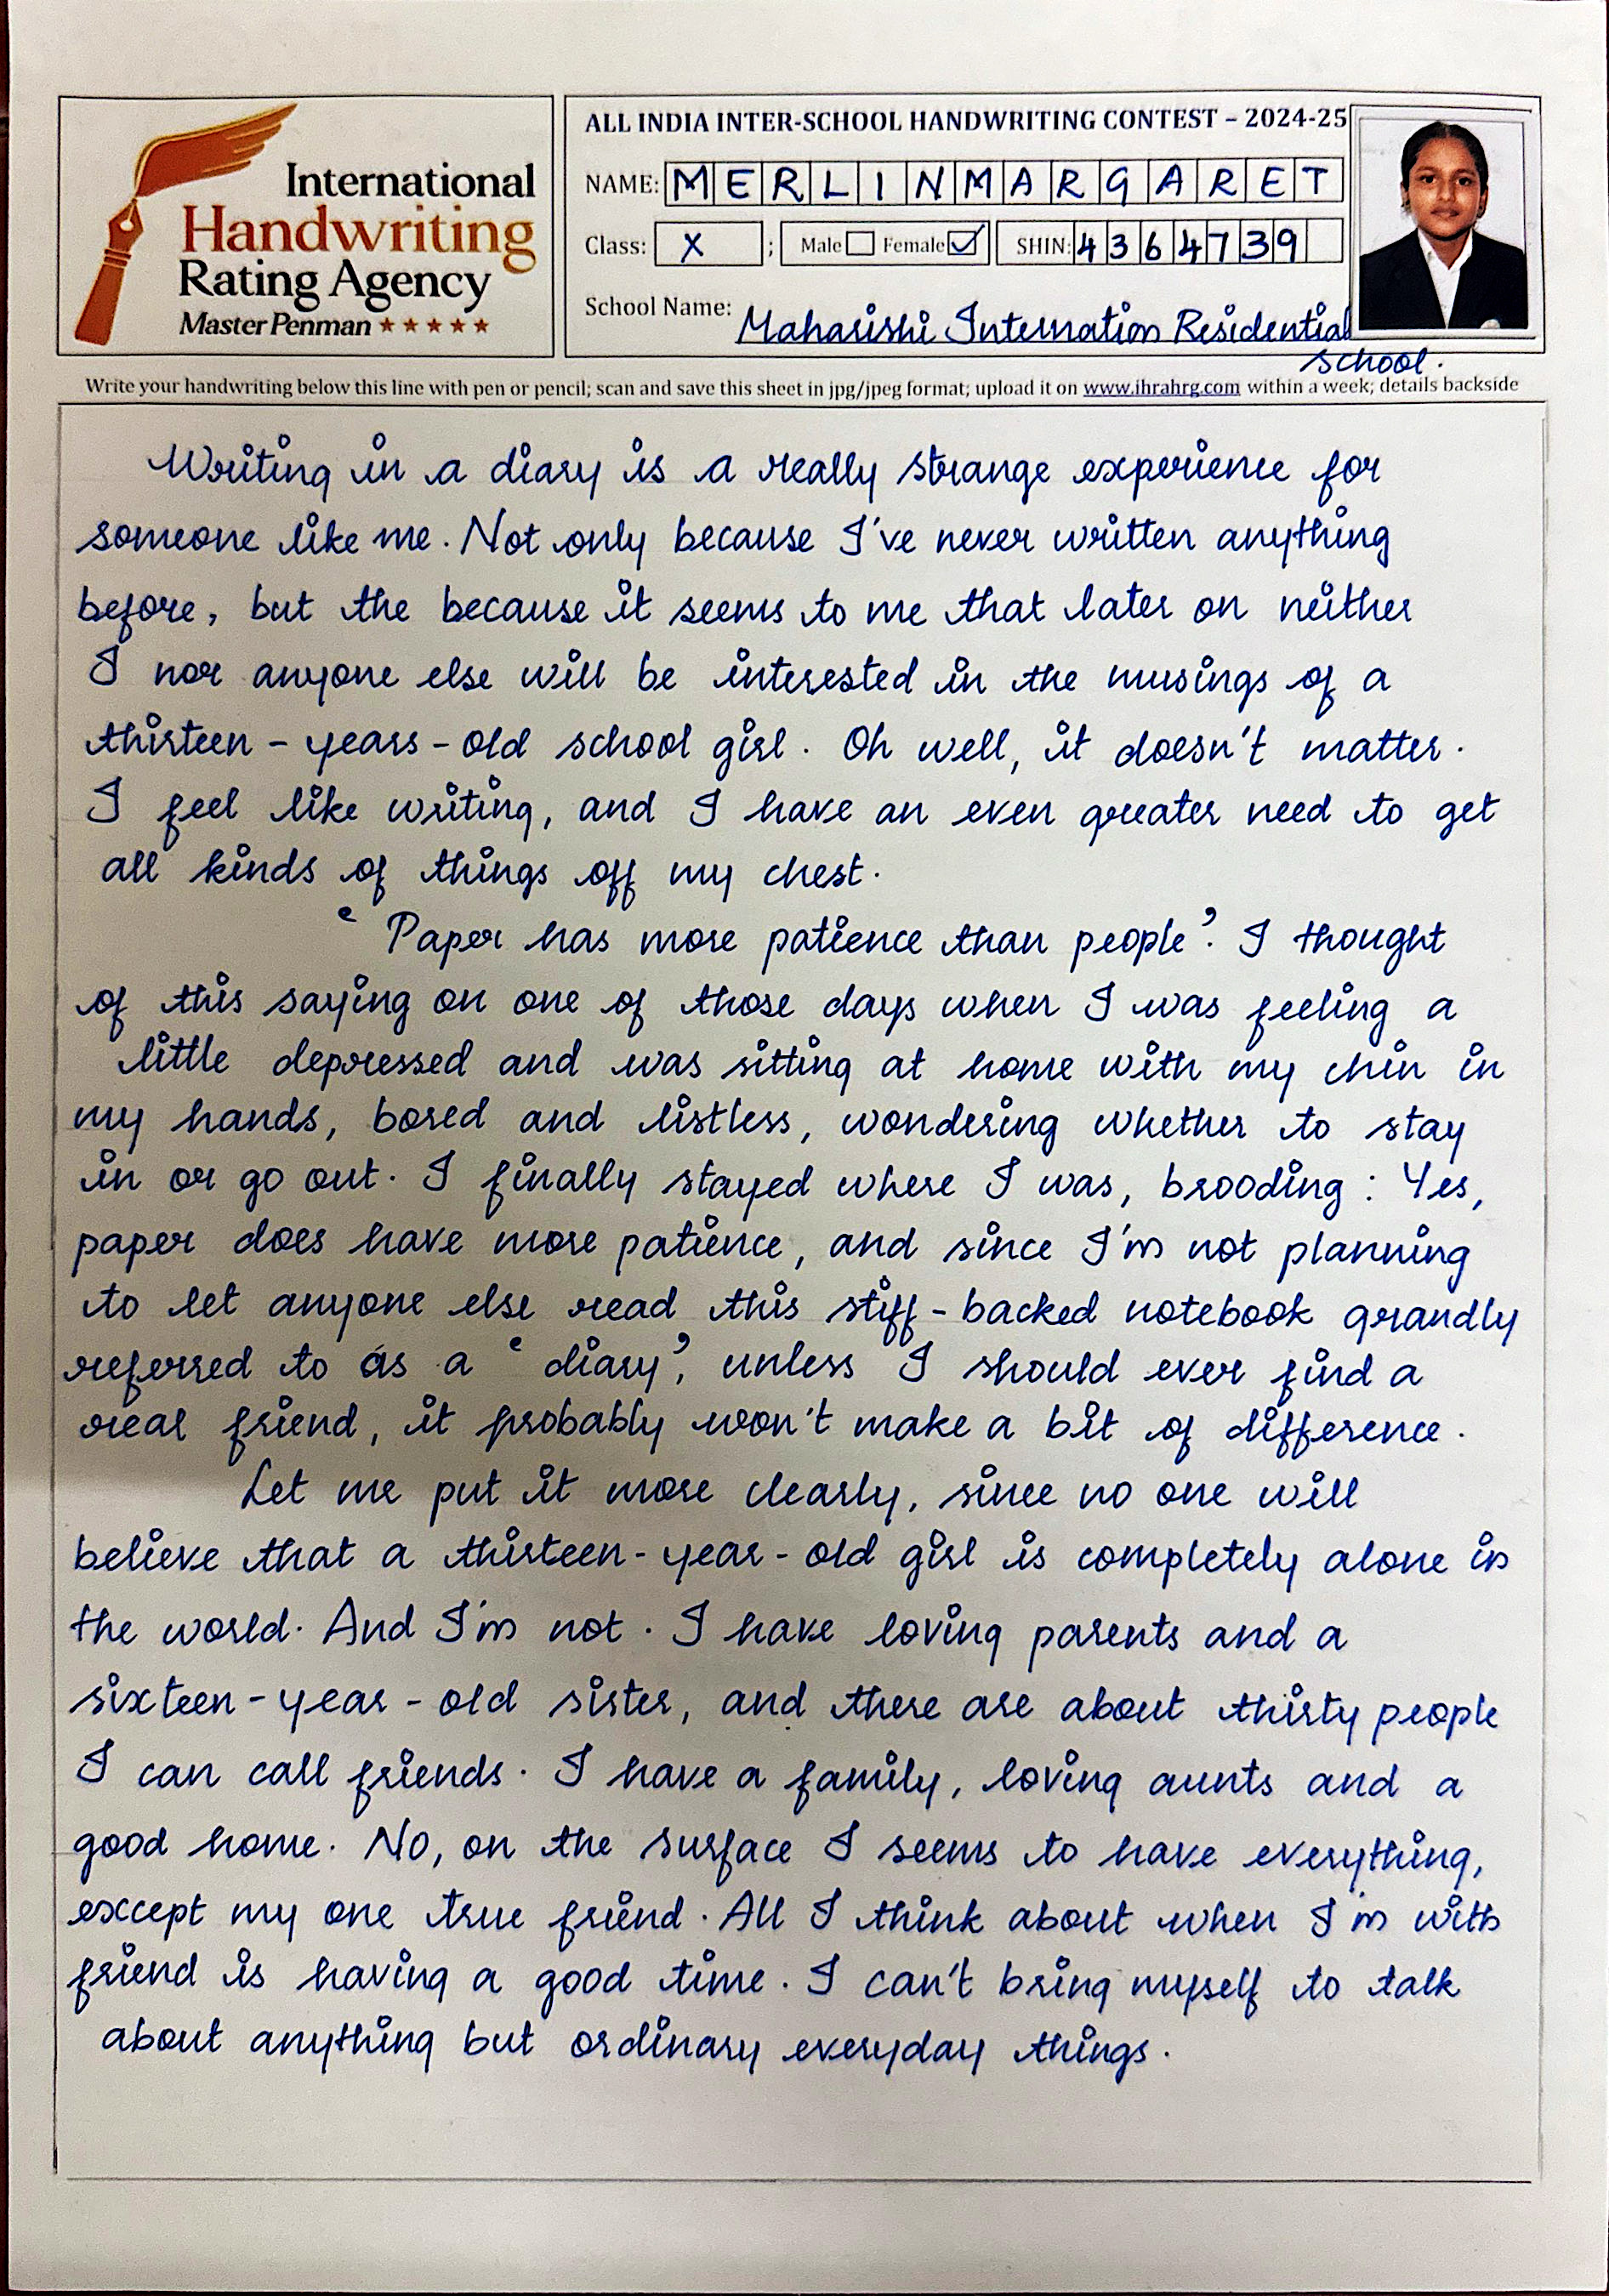 International
Handwriting
Rating Agency
Master Penman ★★★★★
ALL INDIA INTER-SCHOOL HANDWRITING CONTEST – 2024-25
NAME: MERLINMARGARET
Class: X ; Male Female ✓ SHIN: 4364739
School Name: Maharishi Internation Residential
school.
Write your handwriting below this line with pen or pencil; scan and save this sheet in jpg/jpeg format; upload it on www.ihrahrg.com within a week; details backside
Writing in a diary is a really strange experience for
someone like me. Not only because I've never written anything
before, but the because it seems to me that later on neither
I nor anyone else will be interested in the musings of a
thirteen-years-old school girl. Oh well, it doesn't matter.
I feel like writing, and I have an even greater need to get
all kinds of things off my chest.
‘Paper has more patience than people’. I thought
of this saying on one of those days when I was feeling a
little depressed and was sitting at home with my chin in
my hands, bored and listless, wondering whether to stay
in or go out. I finally stayed where I was, brooding: Yes,
paper does have more patience, and since I'm not planning
to let anyone else read this stiff-backed notebook grandly
referred to as a ‘diary’, unless I should ever find a
real friend, it probably won't make a bit of difference.
Let me put it more clearly, since no one will
believe that a thirteen-year-old girl is completely alone in
the world. And I'm not. I have loving parents and a
sixteen-year-old sister, and there are about thirty people
I can call friends. I have a family, loving aunts and a
good home. No, on the surface I seems to have everything,
except my one true friend. All I think about when I'm with
friend is having a good time. I can't bring myself to talk
about anything but ordinary everyday things.